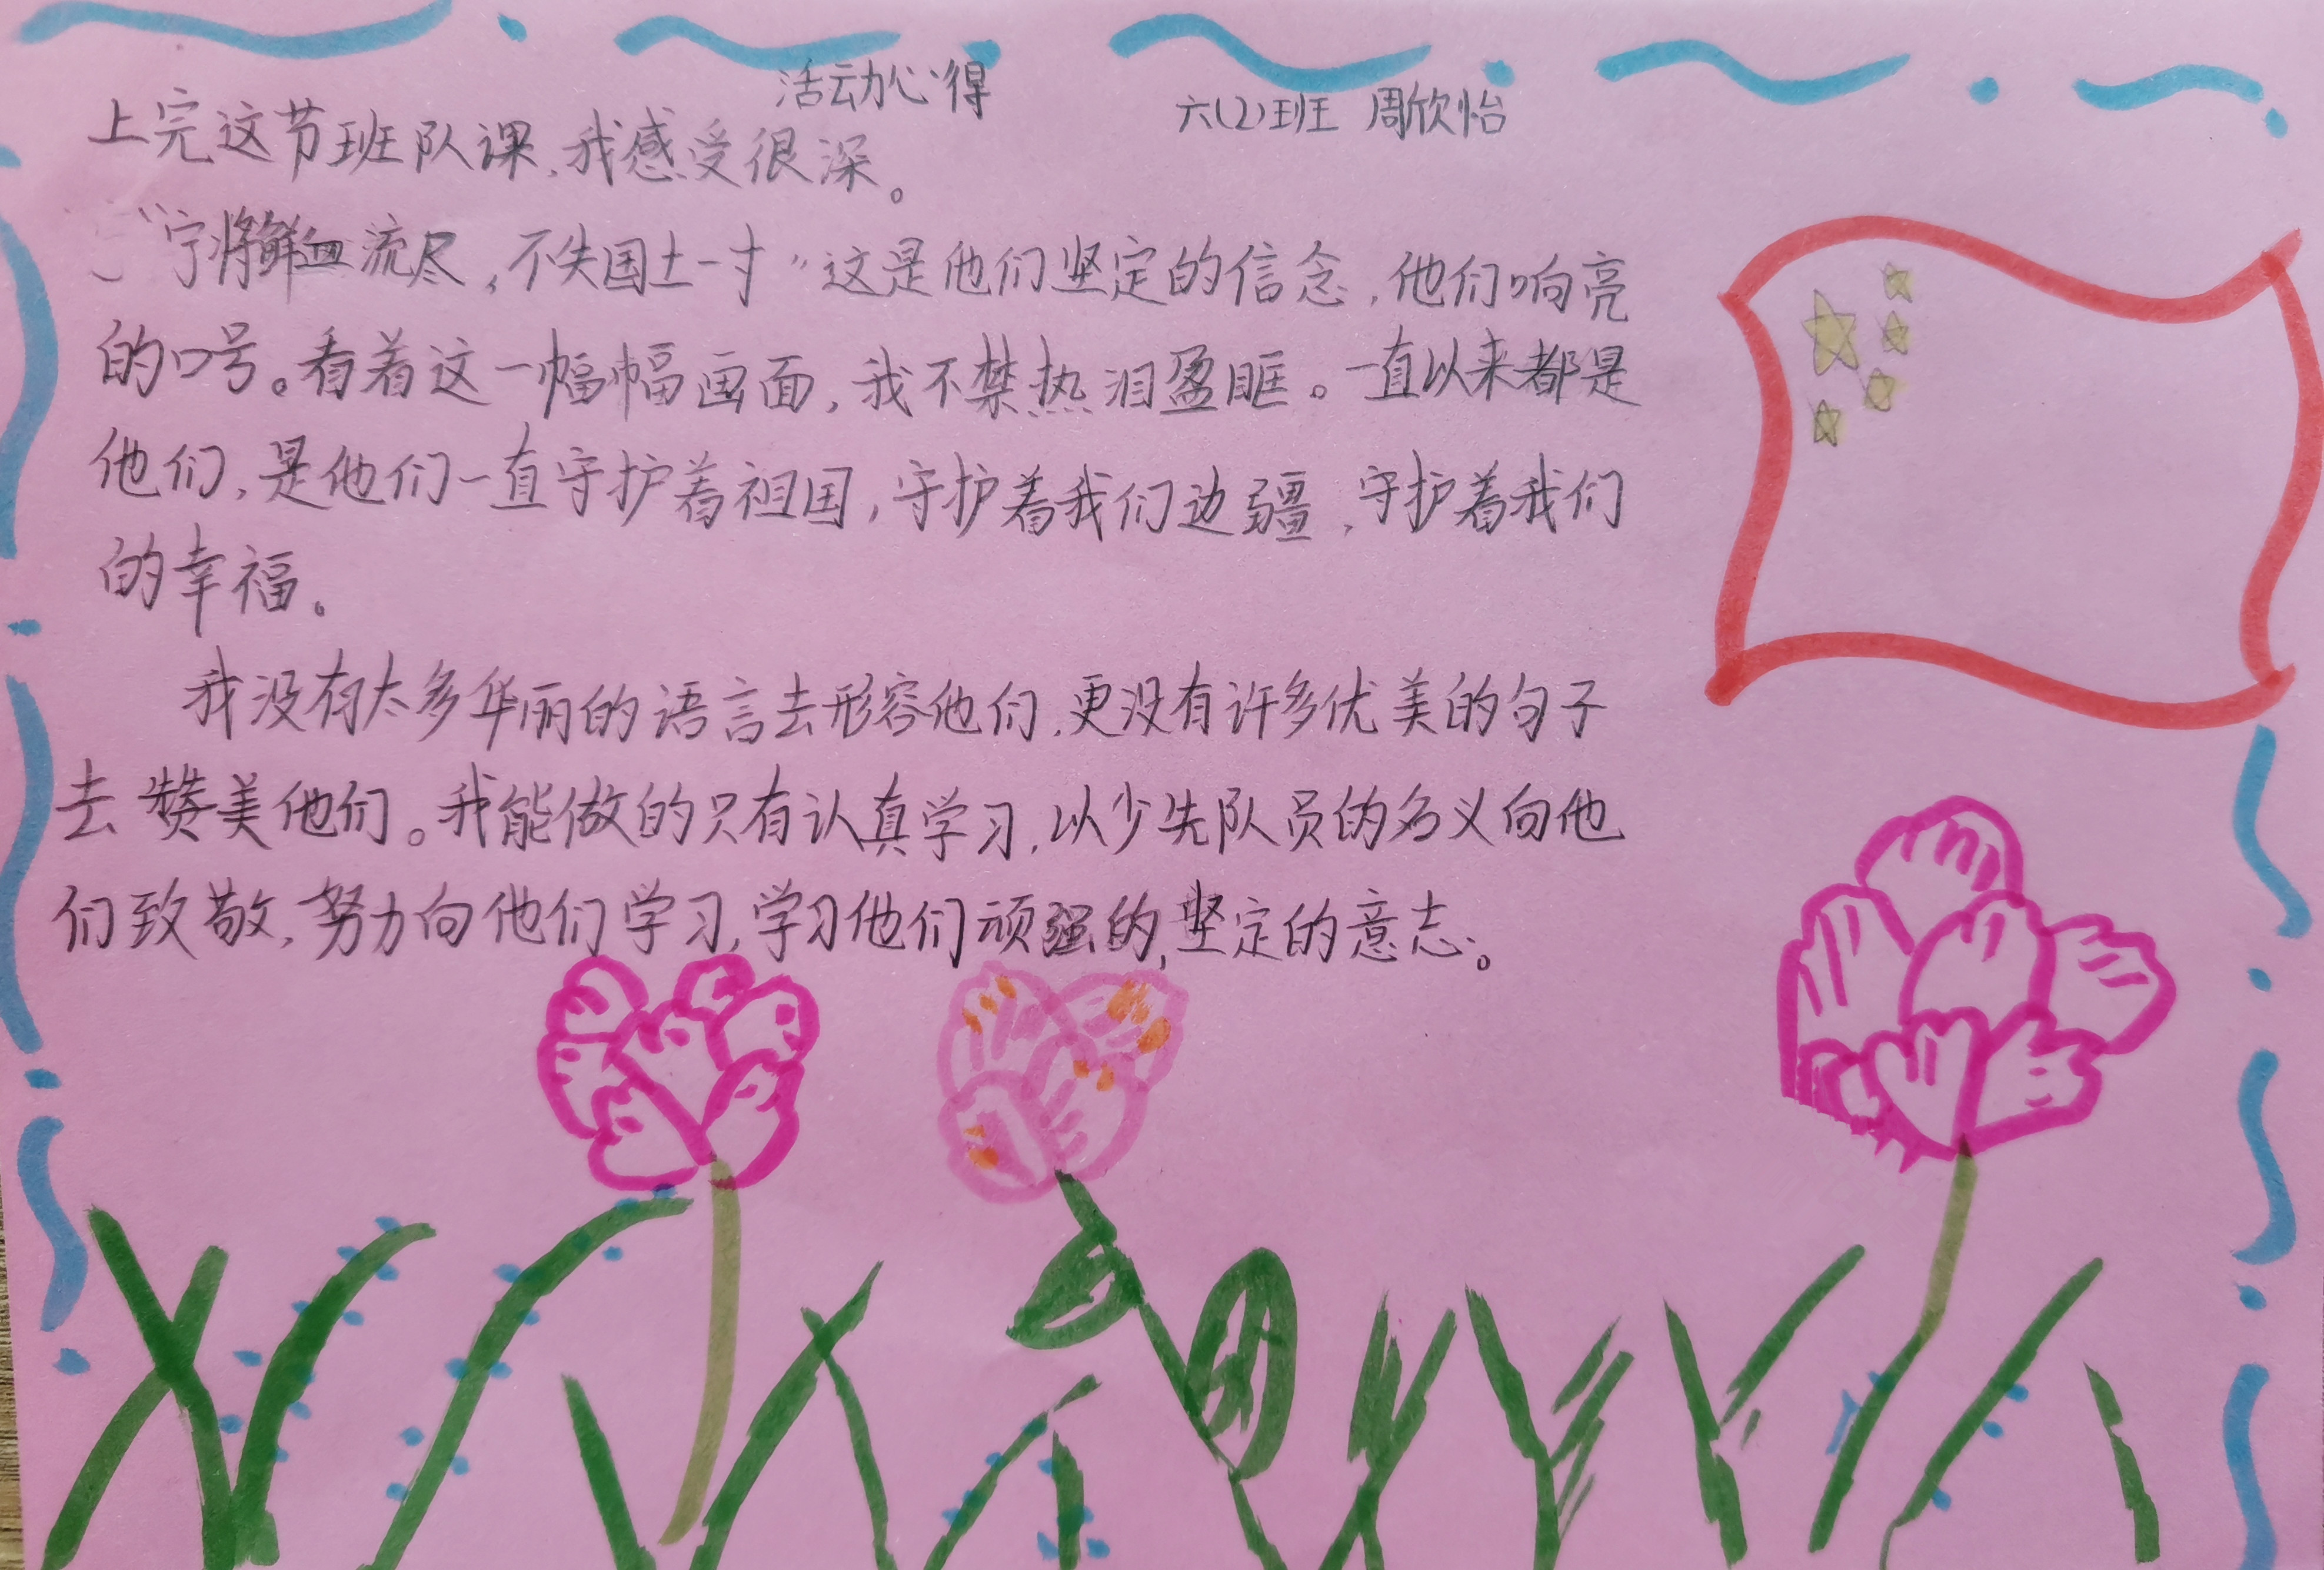 活动心得
六(2)班 周欣怡
上完这节班队课,我感受很深。
“宁将鲜血流尽,不失国土一寸”这是他们坚定的信念,他们响亮
的口号。看着这一幅幅画面,我不禁热泪盈眶。一直以来都是
他们,是他们一直守护着祖国,守护着我们边疆,守护着我们
的幸福。
我没有太多华丽的语言去形容他们,更没有许多优美的句子
去赞美他们。我能做的只有认真学习,以少先队员的名义向他
们致敬,努力向他们学习,学习他们顽强的,坚定的意志。